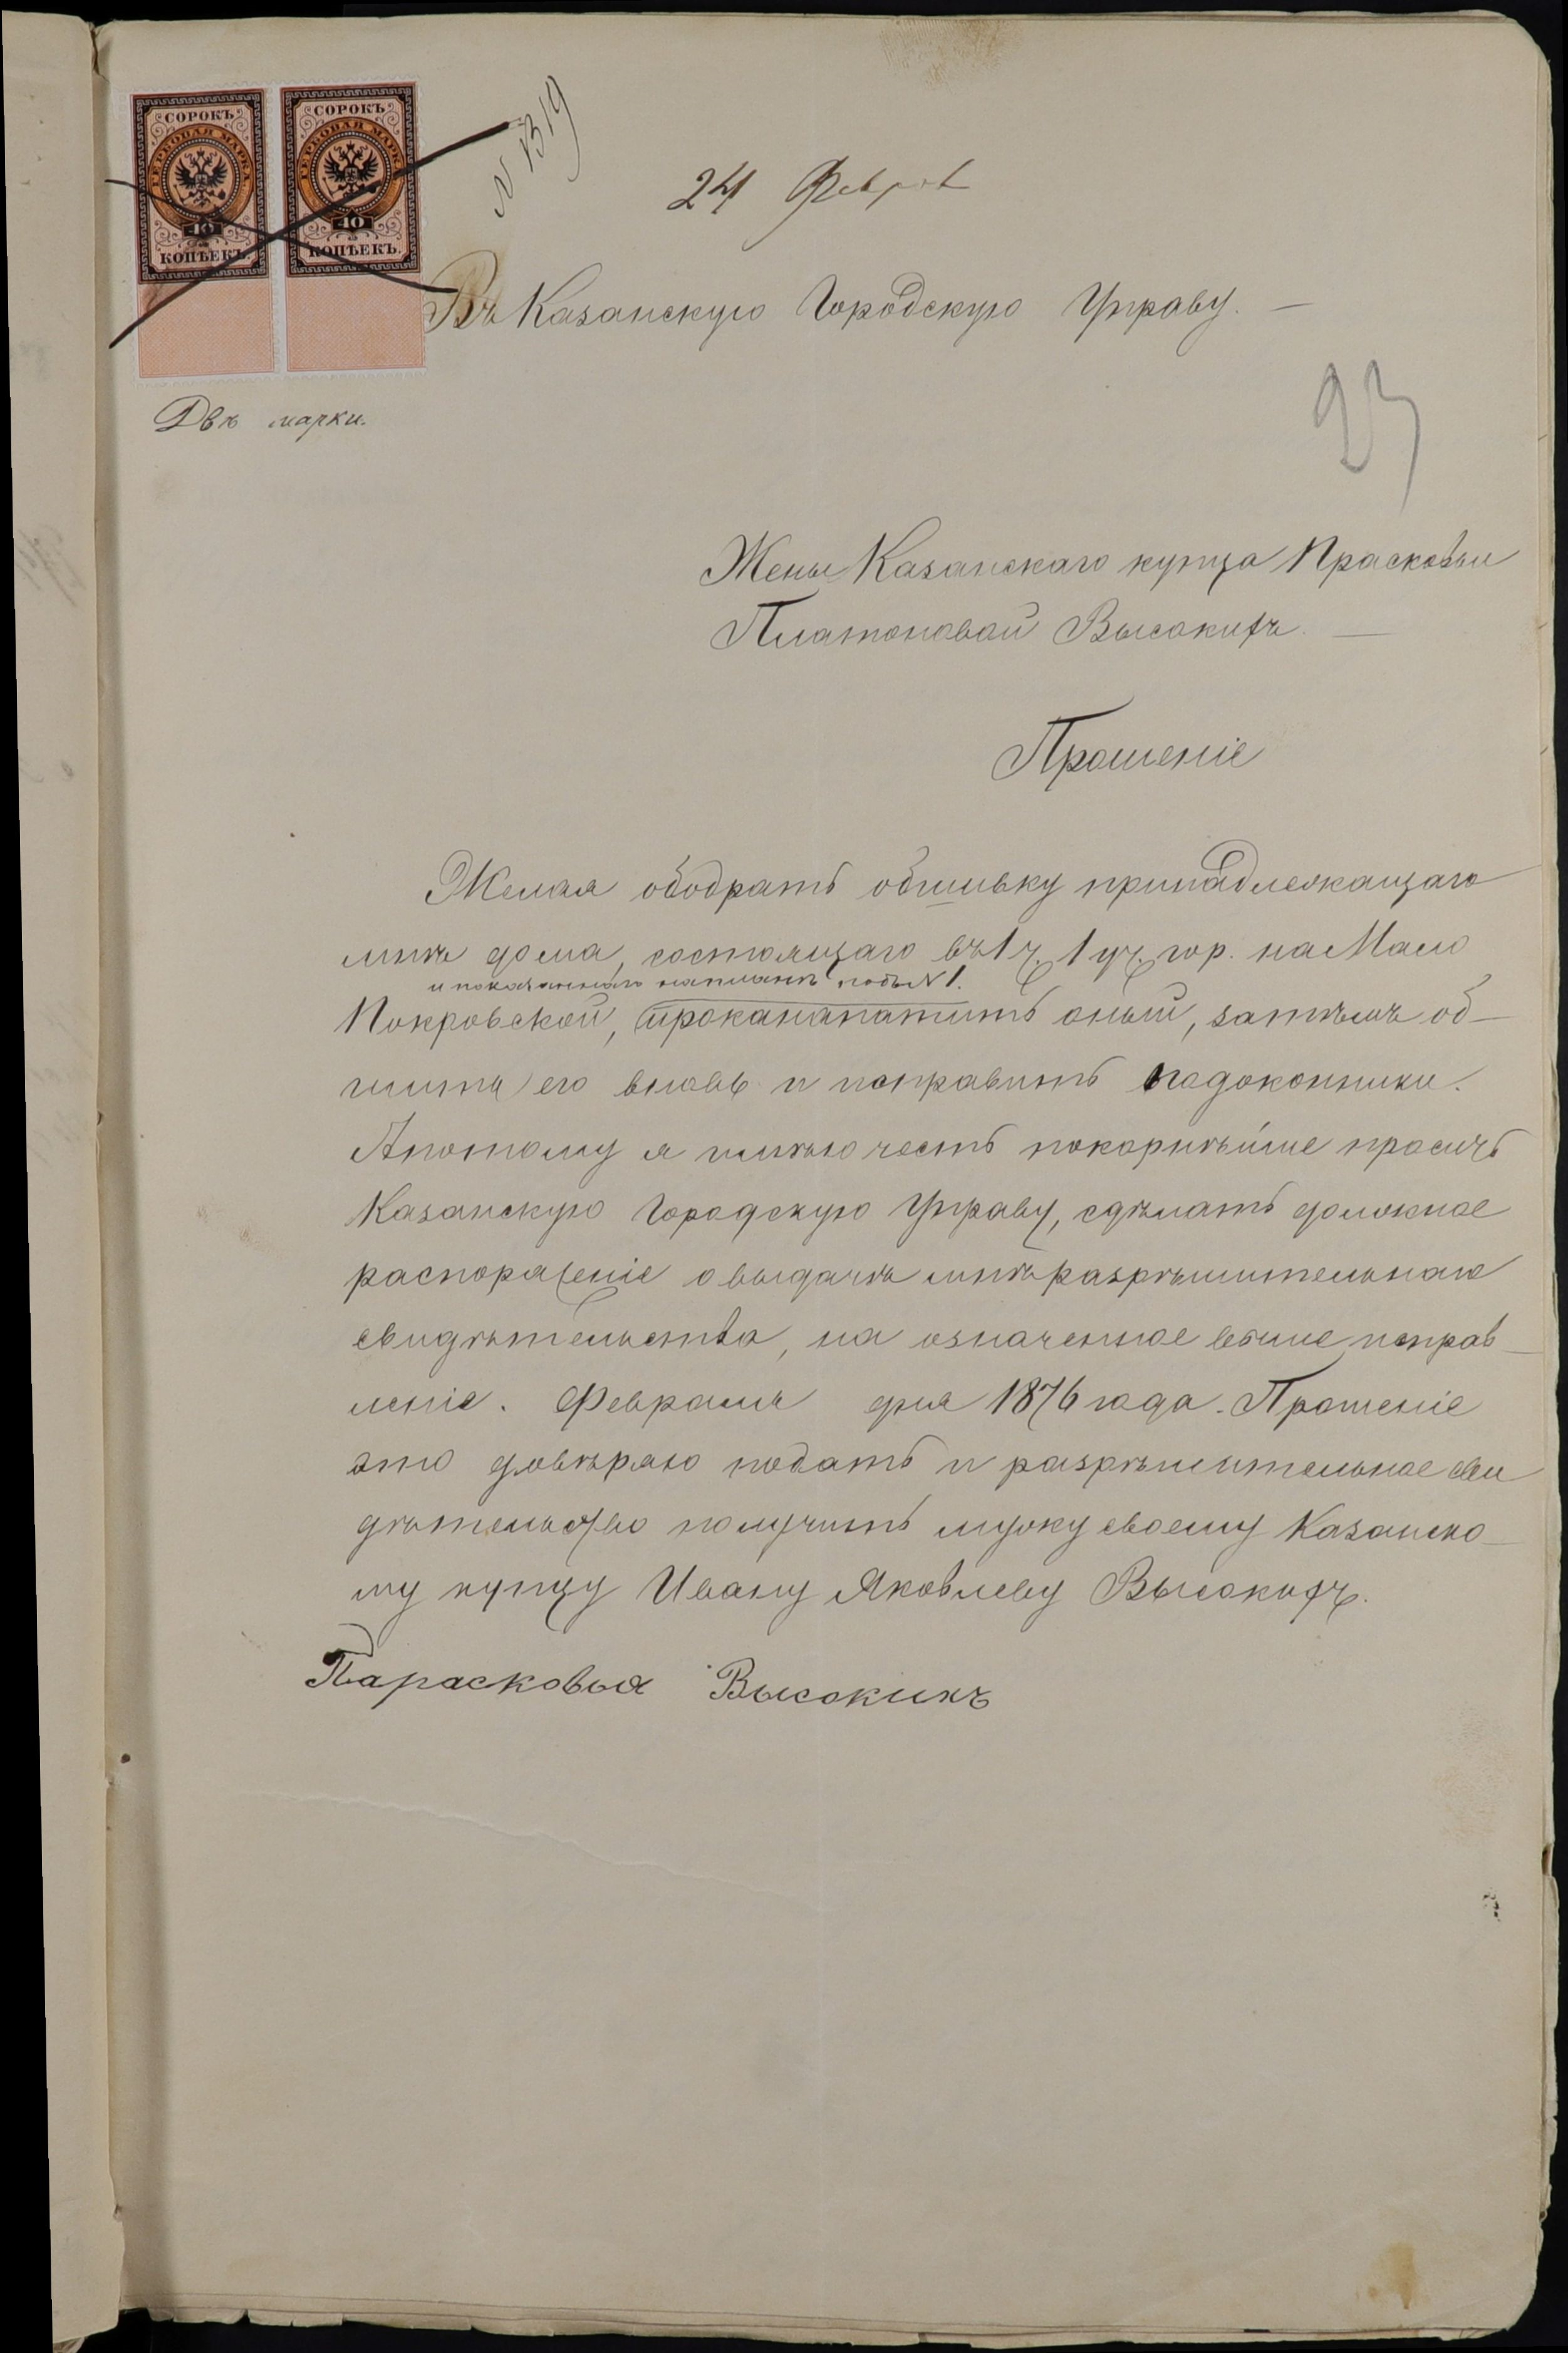 СОРОКЪ СОРОКЪ
ГЕРБОВАЯ МАРКА ГЕРБОВАЯ МАРКА
40 40
КОПѢЕКЪ. КОПѢЕКЪ.
N 1319
24 Февр
Въ Казанскую Городскую Управу. —
Двѣ марки.
93
Жены Казанскаго купца Прасковьи
Платоновой Высокихъ. —
Прошеніе
Желая ободрать обшивку принадлежащаго
мнѣ дома, состоящаго въ 1 ч. 1 уч. гор. на Мало
и показаннаго на планѣ подъ N 1.
Покровской, проканапатить оный, затѣмъ об-
шить его вновь и поправить подоконники.
А потому я имѣю честь покорнѣйше просить
Казанскую Городскую Управу, сдѣлать должное
распоряженіе о выдачѣ мнѣ разрѣшительнаго
свидѣтельства, на означенное выше исправ-
леніе. Февраля дня 1876 года. Прошеніе
это довѣряю подать и разрѣшительное сви
дѣтельство получить мужу своему Казанско-
му купцу Ивану Яковлеву Высокихъ.
Парасковья Высокихъ